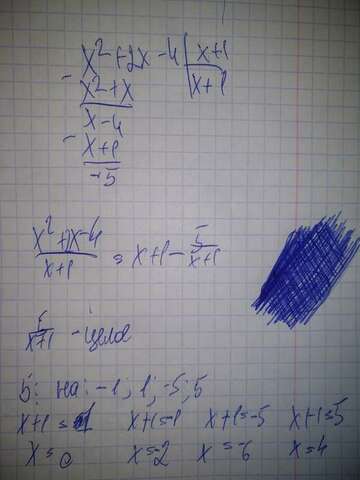 x² + 2x - 4 | x+1
- x² + x | x+1
x - 4
- x + 1
-5
x²+2x-4 / x+1 = x+1 - 5/x+1
5/x+1 - целое
5: на: -1; 1; -5; 5
x+1=1 x+1=-1 x+1=-5 x+1=5
x=0 x=-2 x=-6 x=4